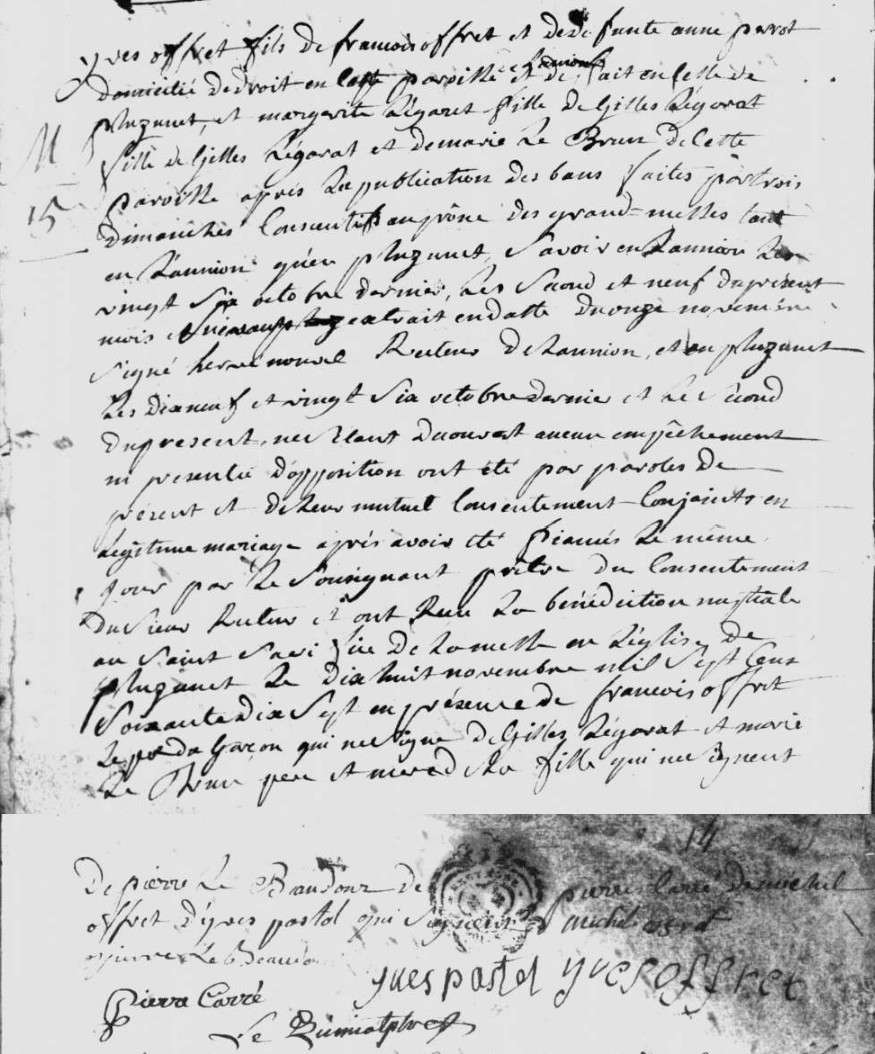 yves offret fils de francois offret et de defunte anne parot
domicilié de droit en cette paroisse et de fait en celle de
pluzunet, et margarite Légarat fille de Gilles Légarat
M
fille de Gilles Légarat et de marie Le Brun de Cette
15
paroisse après la publication des bans faites par trois
dimanches Consecutifs au prône des grand-messes tant
en Lannion qu'en pluzunet, Savoir en Lannion Les
vingt Six octobre dernier, Les Second et neuf du présent
mois extrait en datte du onze novembre
signé hervé nouvel Recteur de Lannion, et en pluzunet
Les dixneuf et vingt Six octobre dernier et Le Second
du present, ne S'etant decouvert aucun empêchement
ni presenté d'opposition ont été par paroles de
présent et de Leur mutuel Consentement Conjoints en
Légitime mariage après avoir été fiancés Le même
jour par Le Sousignant prêtre du Consentement
du Sieur Recteur et ont Recu La bénédiction nuptiale
au Saint Sacrifice de La messe en L'église de
pluzunet Le dix huit novembre mil Sept Cent
Soixante dix Sept en présence de francois offret
Le pere du Garçon qui ne Signe de Gilles Légarat et marie
Le Brun père et mere de La fille qui ne Signent
14
De pierre Le Baudour de pierre Carré de michel
offret d'yves postol qui Signent michel offret
pierre Le Beaudour
yves postol yves offret
Pierre Carré
Le ptre